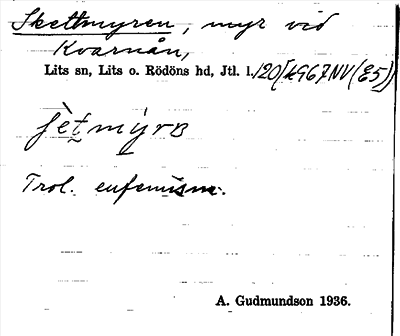 Skettmyren, myr vid
Kvarnån,
Lits sn, Lits o. Rödöns hd, Jtl. l.
fètmýrʙ
Trol. eufemism.
A. Gudmundson 1936.